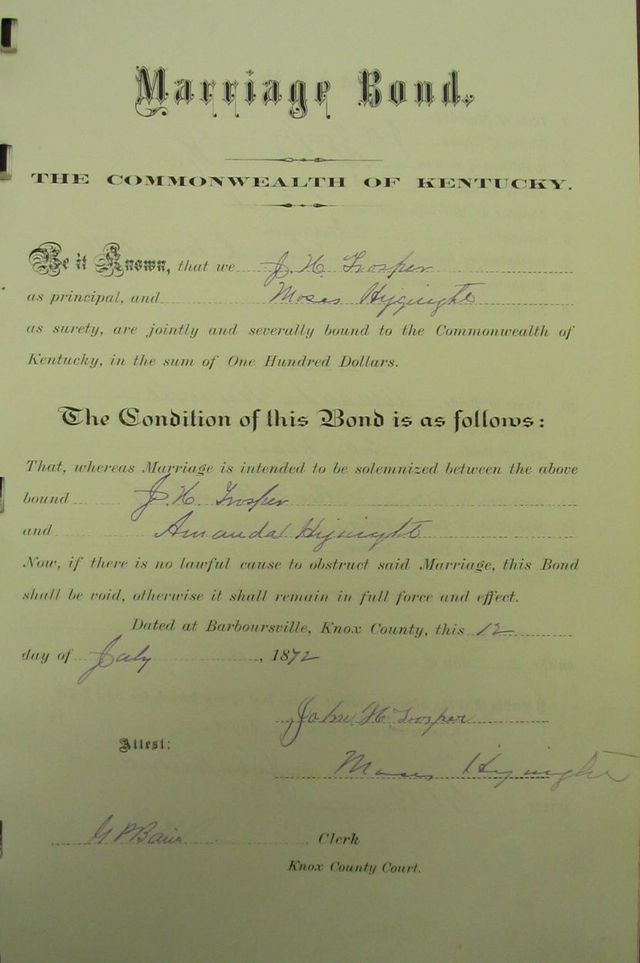 Marriage Bond.
THE COMMONWEALTH OF KENTUCKY.
Be it Known, that we J. H. Trosper
as principal, and Moses Hignight
as surety, are jointly and severally bound to the Commonwealth of
Kentucky, in the sum of One Hundred Dollars.
The Condition of this Bond is as follows:
That, whereas Marriage is intended to be solemnized between the above
bound J. H. Trosper
and Amanda Hignight
Now, if there is no lawful cause to obstruct said Marriage, this Bond
shall be void, otherwise it shall remain in full force and effect.
Dated at Barboursville, Knox County, this 12
day of July, 1872
John H. Trosper
Attest:
Moses Hignight
Clerk
Knox County Court.